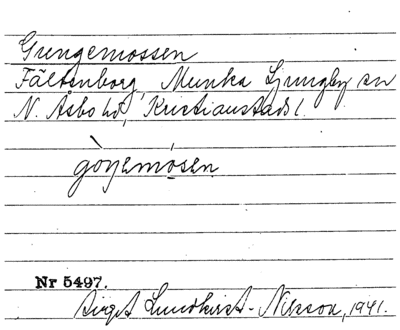 Grungemossen
Fältenborg, Munka Ljungby sn
N. Åsbo hd, Kristianstads l.
Nr 5497.
Birgit Lundkvist-Nilsson, 1941.